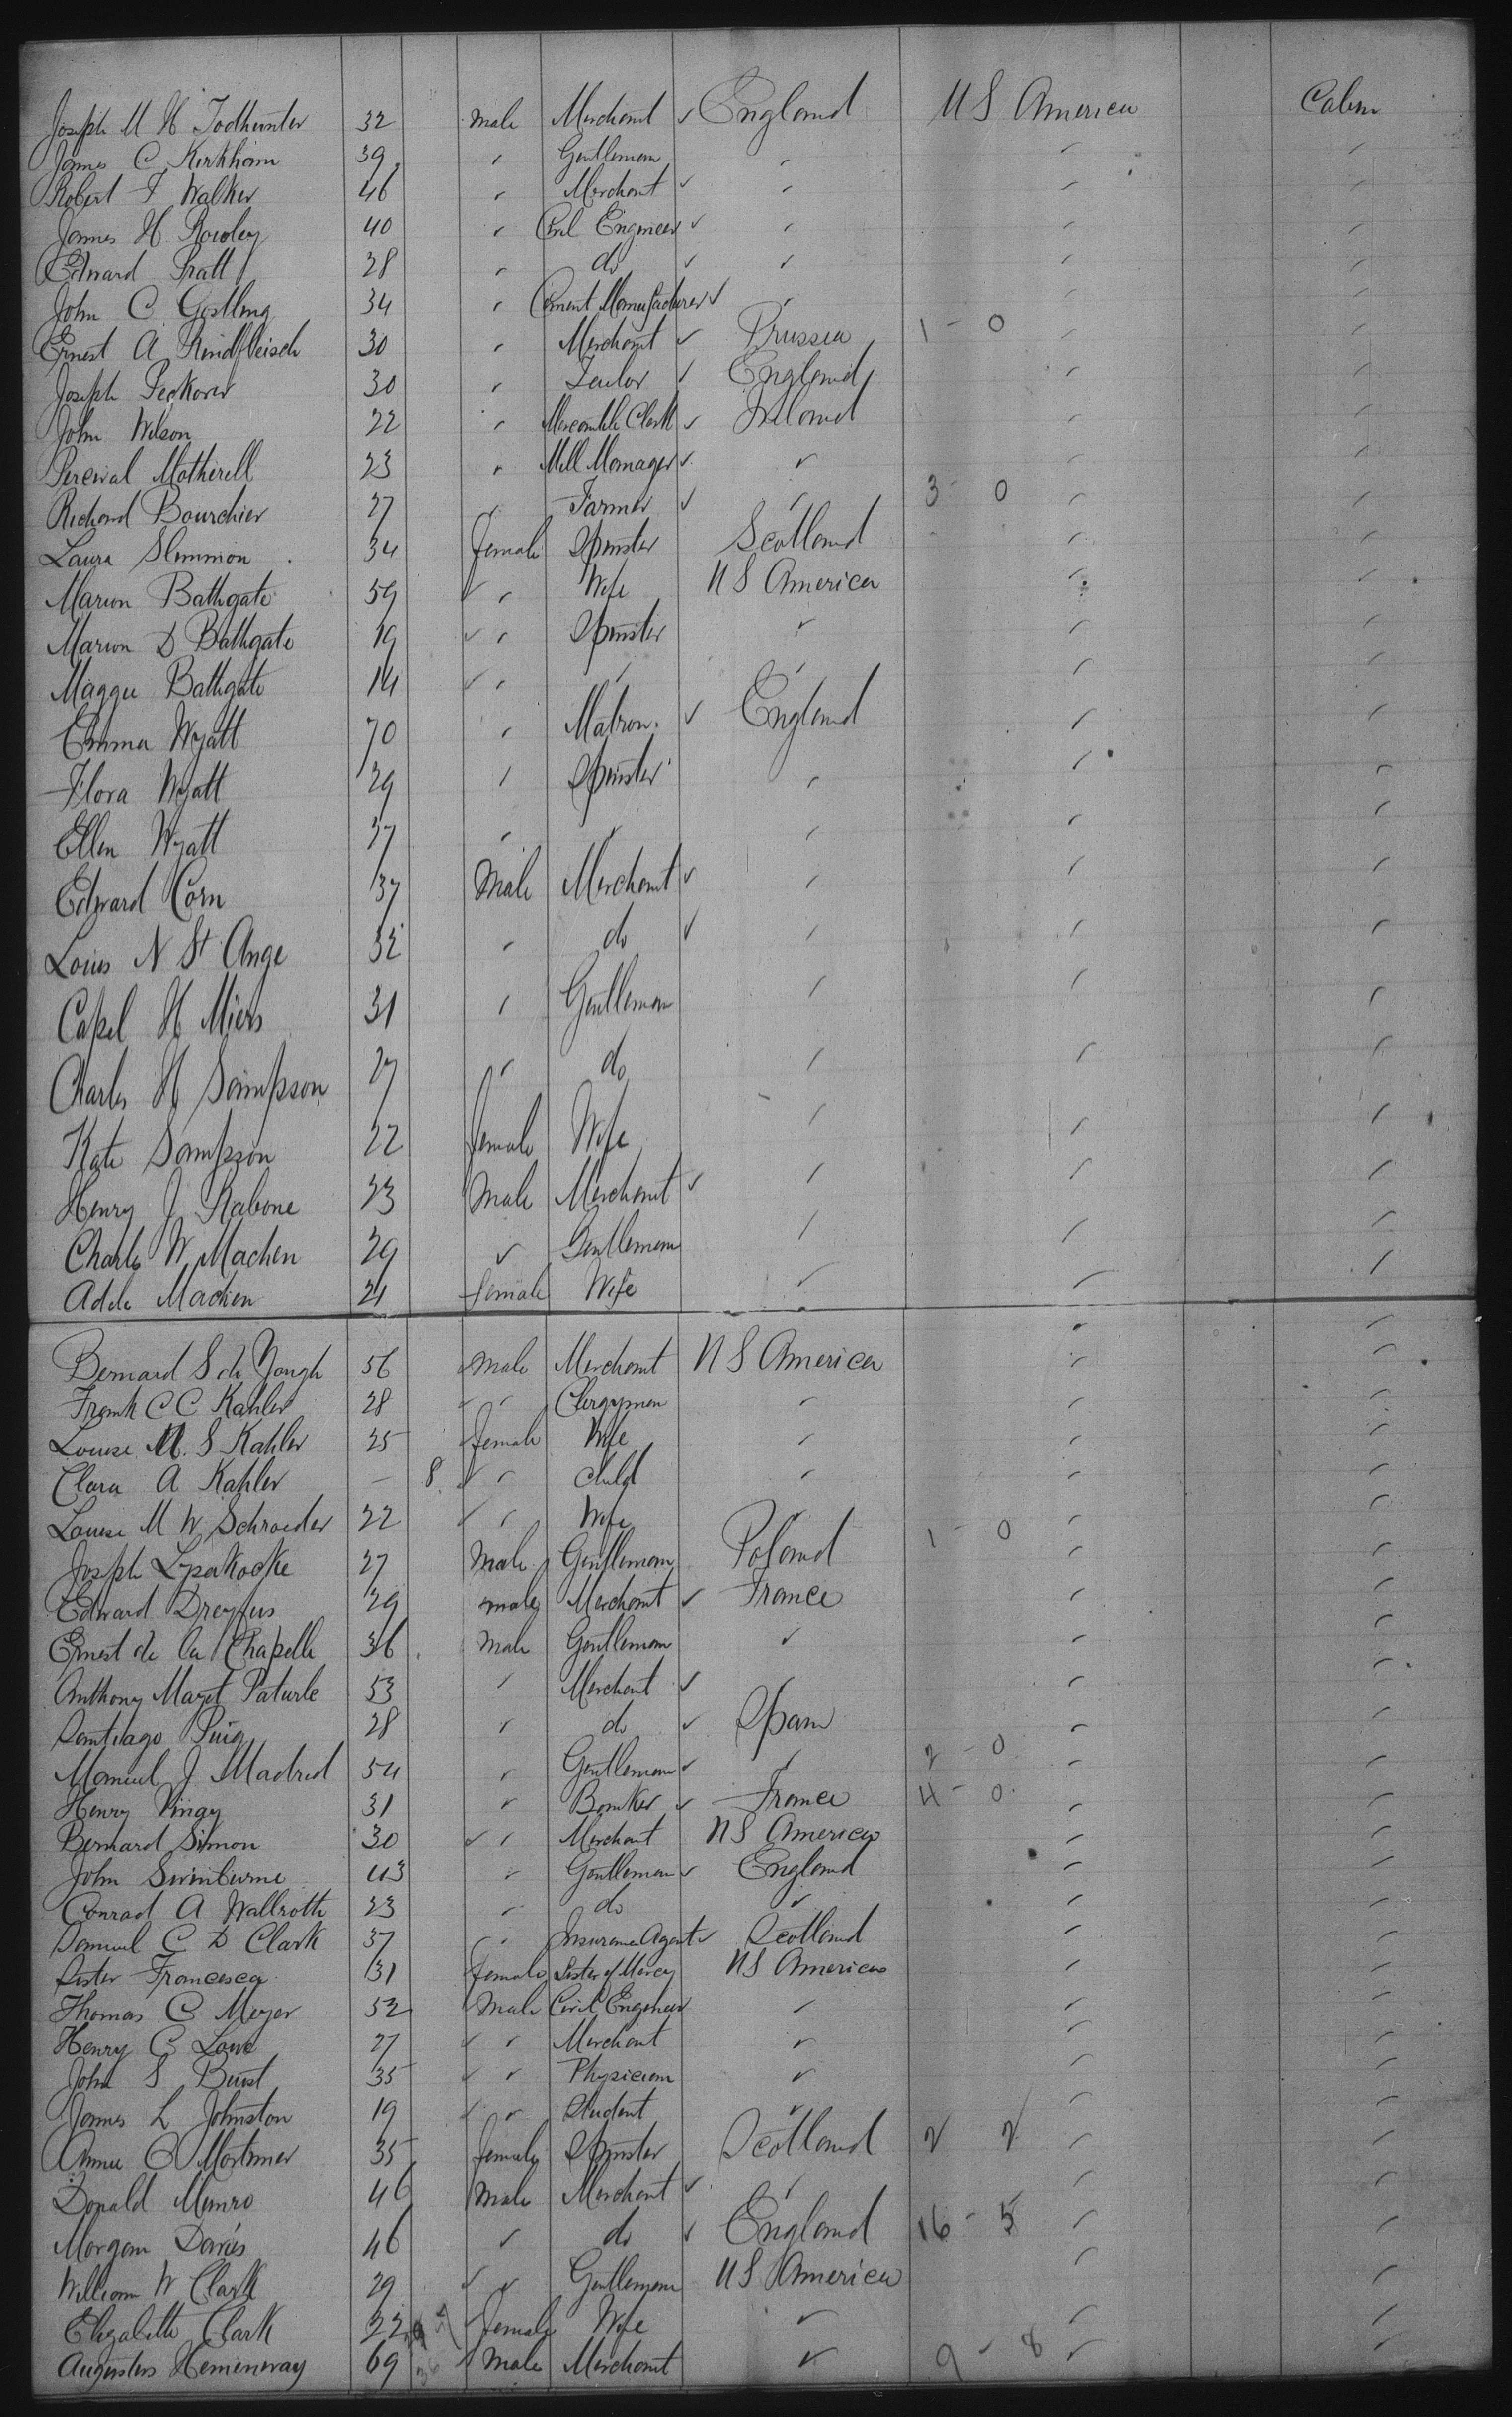 Joseph M H Todhunter 32 male Merchant ✓ England U S America Cabin
James C Kirkham 39 " Gentleman " " "
Robert F Walker 46 " Merchant ✓ " " "
James H Rowley 40 " Civil Engineer ✓ " " "
Edward Pratt 28 " do ✓ " " "
John C Gostling 34 " Cement Manufacturer ✓ " " "
Ernest A Rindfleisch 30 " Merchant ✓ Prussia 1 - 0 " "
Joseph 30 " ✓ England " "
John Wilson 22 " Mercantile Clerk ✓ Ireland " "
Percival Motherell 23 " Mill Manager ✓ " " "
Richard Bourchier 27 " Farmer ✓ " 3 - 0 " "
Laura Slimmon 34 female Spinster Scotland " "
Marion Bathgate 59 ✓ " Wife U S America " "
Marion D Bathgate 19 ✓ " Spinster " " "
Maggie Bathgate 14 ✓ " " " " "
Emma Wyatt 70 " Matron ✓ England " "
Flora Wyatt 29 " Spinster " " "
Ellen Wyatt 37 " " " " "
Edward Corn 37 Male Merchant ✓ " " "
Louis N St Ange 32 " do ✓ " " "
Capel H Miers 31 " Gentleman " " "
Charles H Sampson 27 " do " " "
Kate Sampson 22 female Wife " " "
Henry J Rabone 23 Male Merchant ✓ " " "
Charles W Machen 29 " Gentleman " " "
Adele Machen 24 female Wife " " "
Bernard S de Yongh 56 male Merchant U S America " "
Frank C C Kahler 28 " " Clergyman " " "
Louise M. S Kahler 25 female Wife " " "
Clara A Kahler — 8 ✓ " child " " "
Louise M W Schroeder 22 ✓ " Wife " " "
Joseph 27 Male Gentleman Poland 1 - 0 " "
Edward Dreyfus 29 male Merchant ✓ France " "
Ernest de la Chapelle 36 Male Gentleman " " "
Anthony Mazet Paturle 53 " Merchant ✓ " " "
Santiago Puig 28 " do ✓ Spain " "
Manuel J Madrid 54 " Gentleman ✓ " 2 - 0 " "
Henry 31 " Banker ✓ France 4 - 0 " "
Bernard Simon 30 ✓ " Merchant U S America " "
John Swinburne 43 " Gentleman ✓ England " "
Conrad A Wallroth 23 " do " " "
Samuel C D Clark 37 " Insurance Agent ✓ Scotland " "
Sister Francesca 31 female Sister of Mercy U S America " "
Thomas C Meyer 52 Male Civil Engineer " " "
Henry C Lowe 27 ✓ " Merchant " " "
John S Buist 35 ✓ " Physician " " "
James L Johnston 19 ✓ " Student " " "
Annie C Mortimer 35 female Spinster Scotland 2 2 " "
Donald Munro 46 Male Merchant ✓ " " "
Morgan Davies 46 " do ✓ England 16 - 5 " "
William W Clark 29 ✓ " Gentleman U S America " "
Elizabeth Clark 22 ✓ female Wife " " "
Augustus Hemenway 69 ✓ Male Merchant " 9 - 8 " "